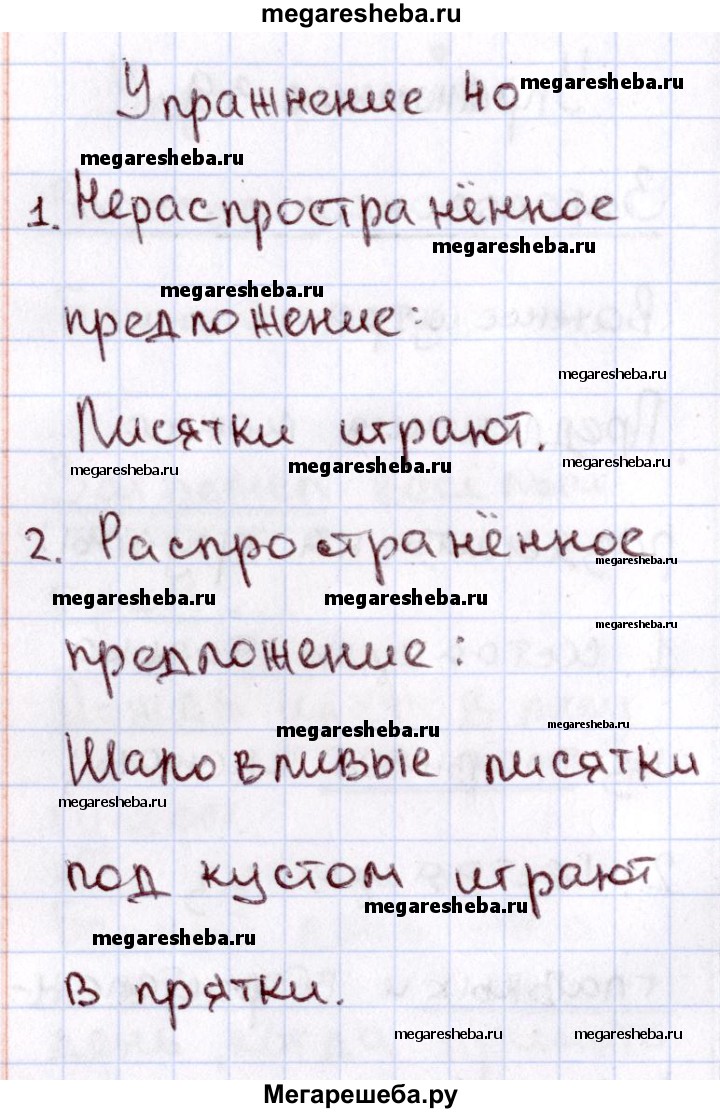 megaresheba.ru
Упражнение 40
megaresheba.ru
megaresheba.ru
1. Нераспространённое
megaresheba.ru
megaresheba.ru
предложение:
megaresheba.ru
Лисятки играют.
megaresheba.ru megaresheba.ru megaresheba.ru
2. Распространённое
megaresheba.ru
megaresheba.ru megaresheba.ru
megaresheba.ru
предложение:
megaresheba.ru megaresheba.ru
Шаловливые лисятки
megaresheba.ru
под кустом играют
megaresheba.ru
megaresheba.ru
в прятки.
megaresheba.ru megaresheba.ru
Мегарешеба.ру